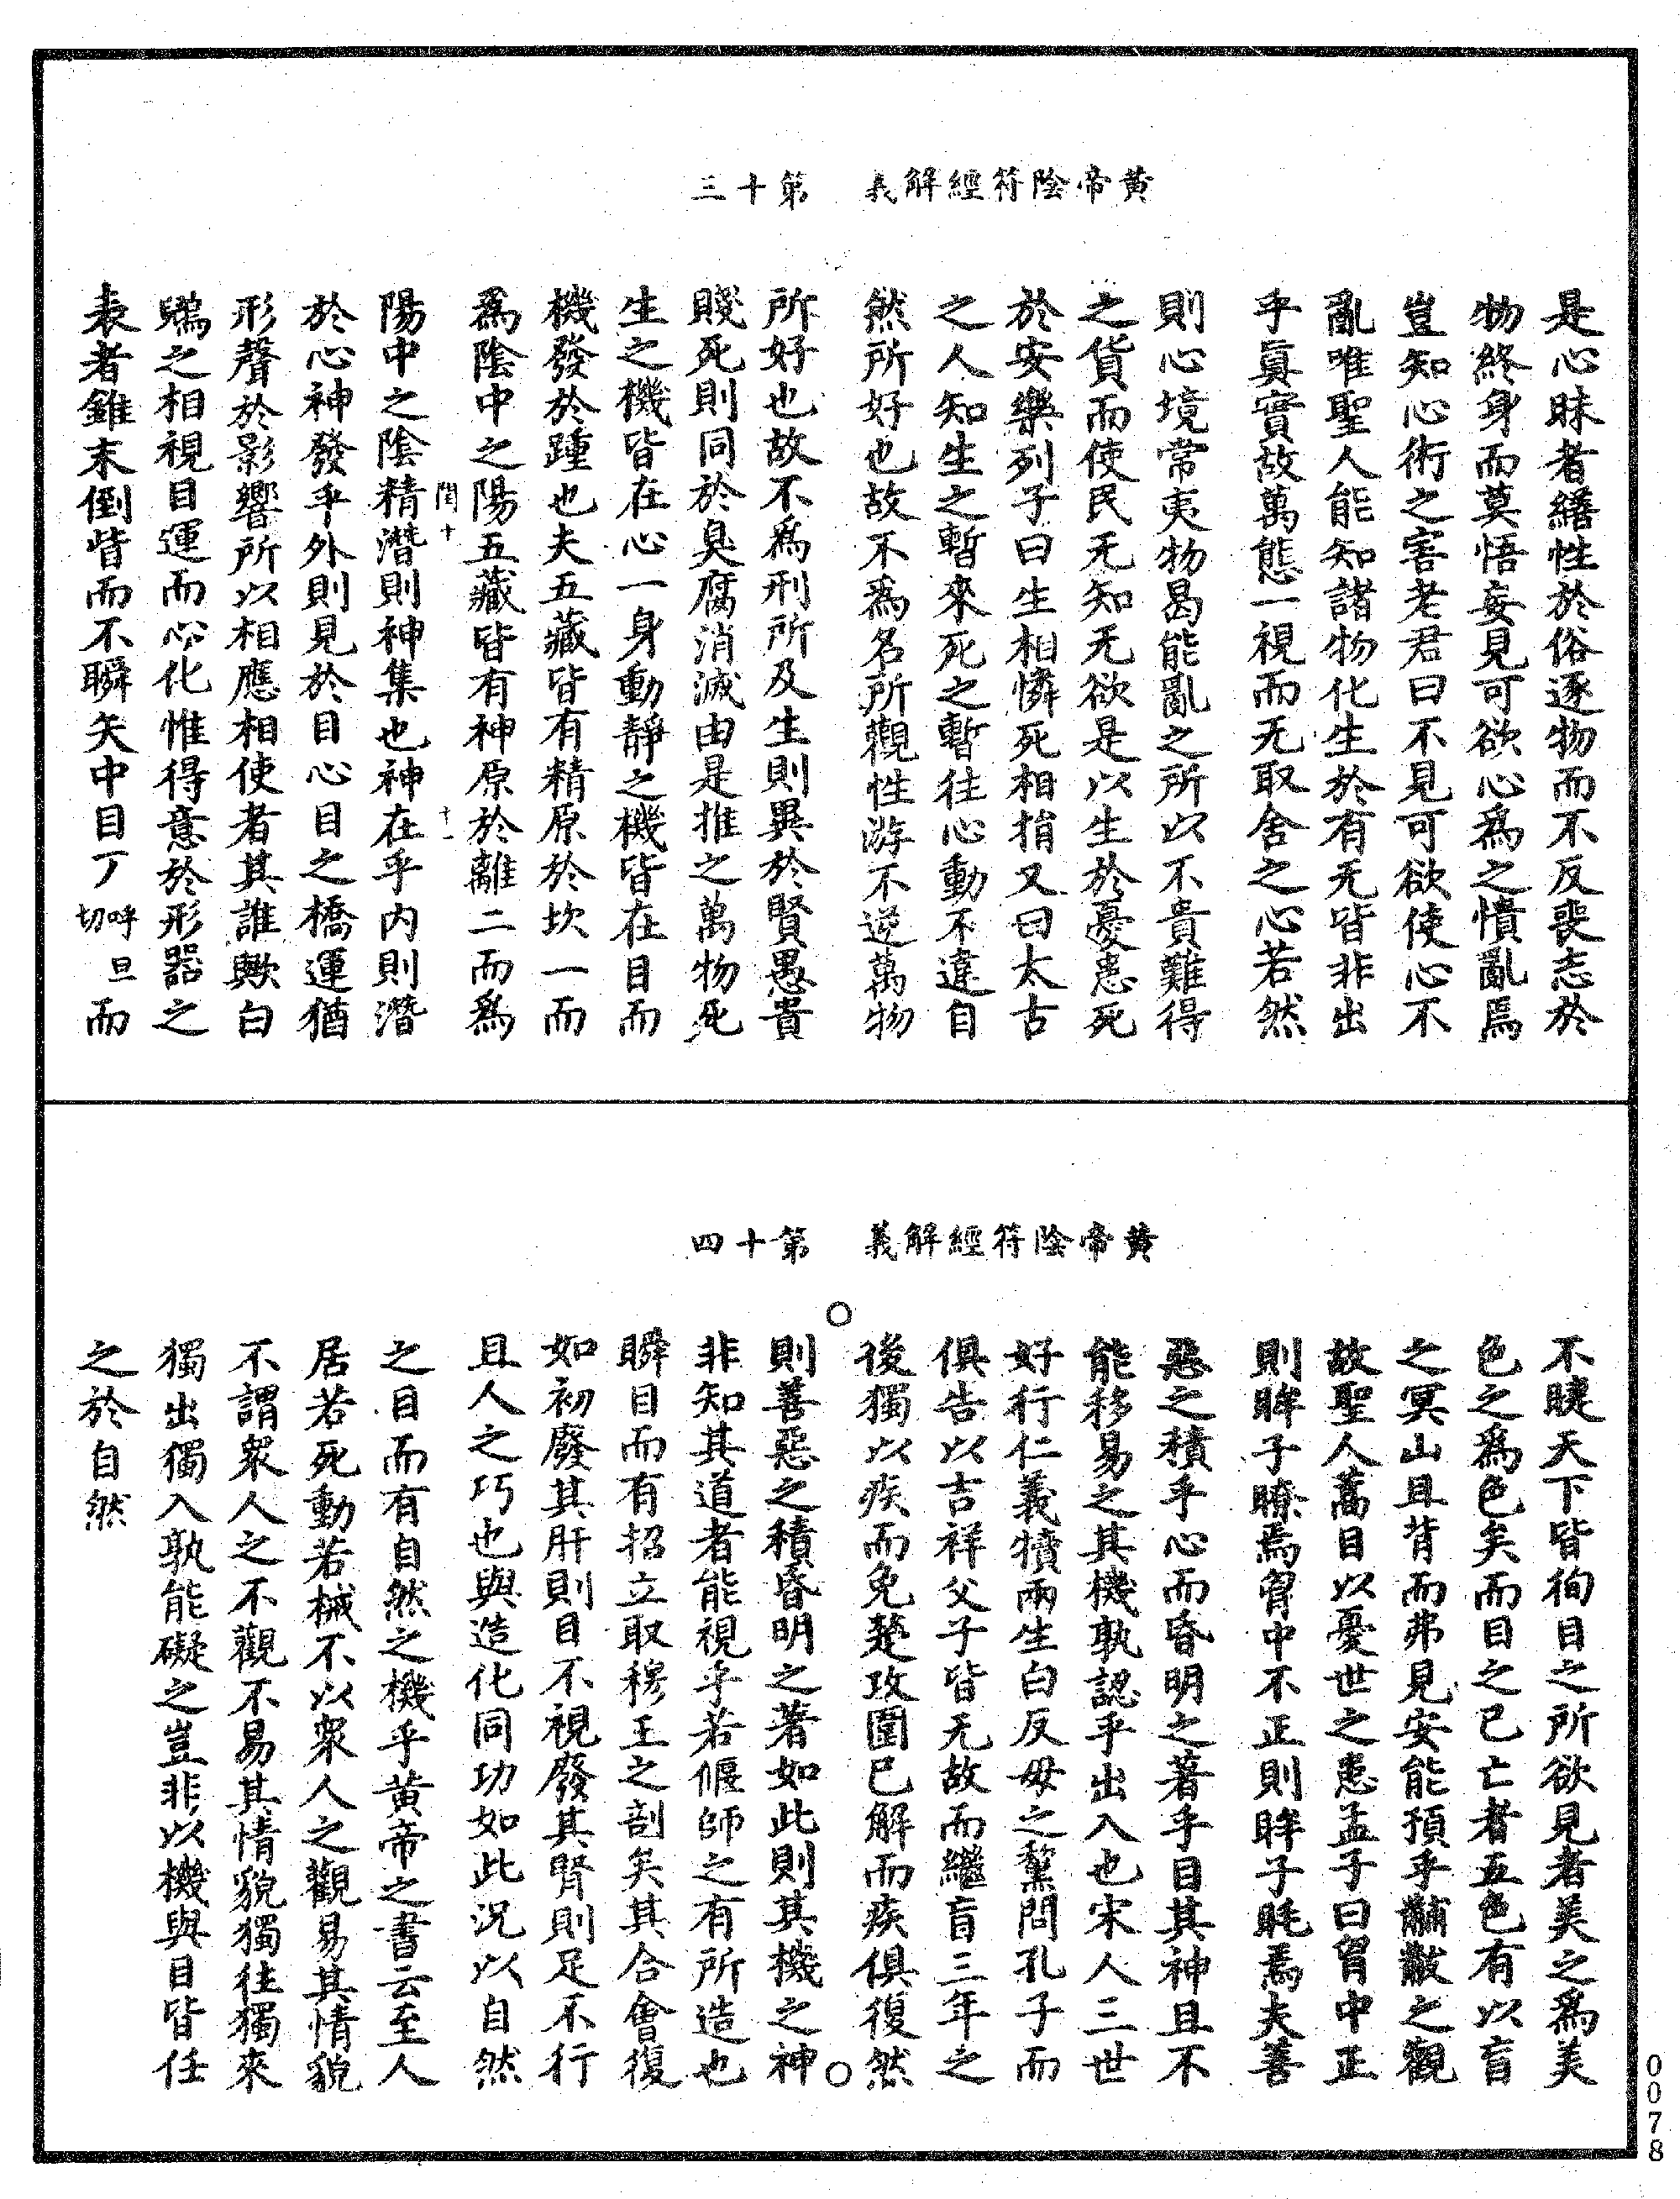 黄帝陰符經解義　第十三
是心昧者繕性於俗逐物而不反喪志於
物終身而莫悟妄見可欲心爲之憒亂焉
豈知心術之害老君曰不見可欲使心不
亂唯聖人能知諸物化生於有无皆非出
乎眞實故萬態一視而无取舍之心若然
則心境常夷物曷能亂之所以不貴難得
之貨而使民无知无欲是以生於憂患死
於安樂列子曰生相憐死相捐又曰太古
之人知生之暫來死之暫往心動不違自
然所好也故不爲名所觀性游不逆萬物
所好也故不爲刑所及生則異於賢愚貴
賤死則同於臭腐消滅由是推之萬物死
生之機皆在心一身動靜之機皆在目而
機發於踵也夫五藏皆有精原於坎一而
爲陰中之陽五藏皆有神原於離二而爲
閏十　十一
陽中之陰精潛則神集也神在乎内則潛
於心神發乎外則見於目心目之橋運猶
形聲於影響所以相應相使者其誰歟白
鶂之相視目運而心化惟得意於形器之
表者錐末倒眥而不瞬矢中目丁呼旦切而
黄帝陰符經解義　第十四
不睫天下皆徇目之所欲見者美之爲美
色之爲色矣而目之已亡者五色有以盲
之冥山且背而弗見安能預乎黼黻之觀
故聖人蒿目以憂世之患孟子曰胷中正
則眸子瞭焉胷中不正則眸子眊焉夫善
惡之積乎心而昏明之著乎目其神且不
能移易之其機孰認乎出入也宋人三世
好行仁義犢兩生白反毋之黧問孔子而
俱告以吉祥父子皆无故而繼盲三年之
後獨以疾而免楚攻圍已解而疾俱復然
則善惡之積昏明之著如此則其機之神
非知其道者能視乎若偃師之有所造也
瞬目而有招立取穆王之剖矣其合會復
如初廢其肝則目不視廢其腎則足不行
且人之巧也與造化同功如此况以自然
之目而有自然之機乎黄帝之書云至人
居若死動若械不以衆人之觀易其情貌
不謂衆人之不觀不易其情貌獨往獨來
獨出獨入孰能礙之豈非以機與目皆任
之於自然
0078